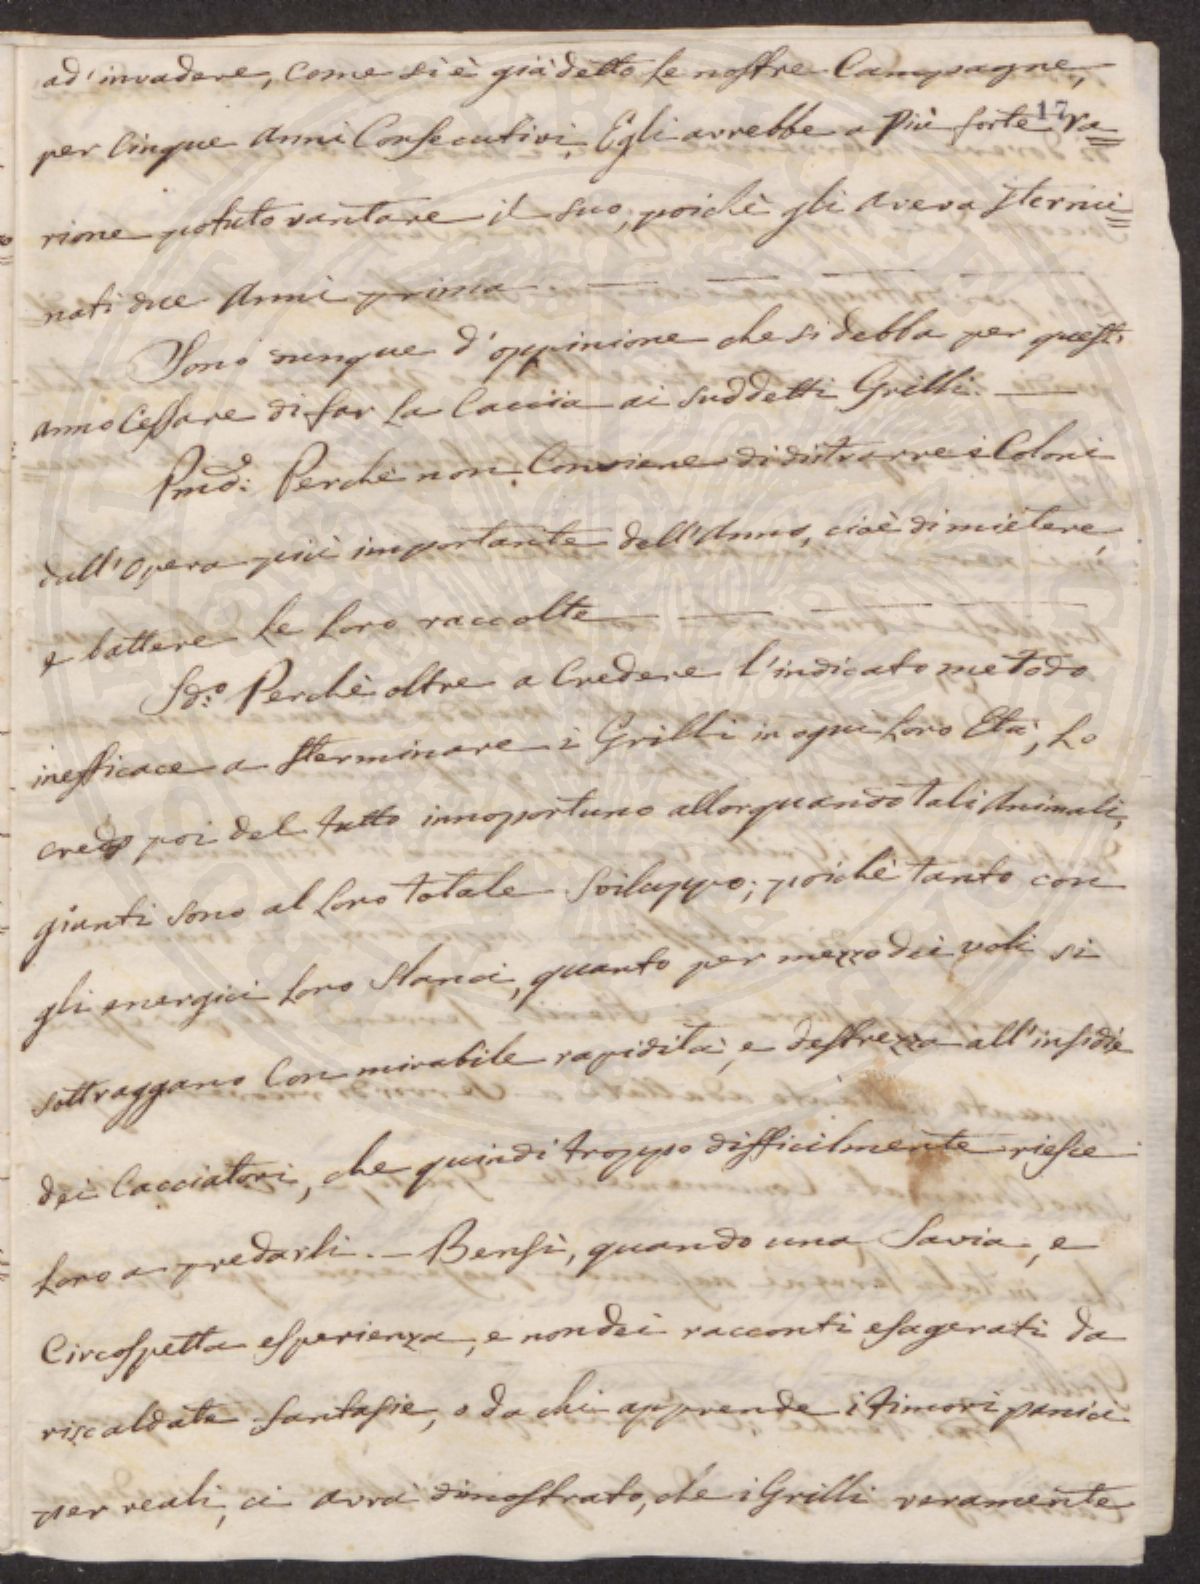 ad' invadere, come si è già detto le nostre Campagne,
17
per Cinque Anni Consecutivi. Egli avrebbe a più forte ra=
rione potuto vantare il suo, poichè gli aveva stermi=
nati due Anni prima
Sono dunque d'oppinione che si debba per quest'
anno Cessare di far la Caccia ai suddetti Grilli. —
Pmo: Perchè non Conviene di distrarre i Coloni
dall'Opera più importante dell'Anno, cioè di mietere,
e battere le loro raccolte
Sdo: Perchè oltre a Credere l'indicato metodo
inefficace a sterminare i Grilli in ogni loro Età, lo
credo poi del tutto innoportuno allorquando tali Animali,
giunti sono al loro totale sviluppo; poichè tanto con
gli energici loro slanci, quanto per mezzo dei voli si
sottraggano Con mirabile rapidità, e destrezza all'insidie
dei Cacciatori, che quindi troppo difficilmente riesce
loro a predarli. — Bensì, quando una Savia, e
Circospetta esperienza, e non dei racconti esagerati da
riscaldate fantasie, o da chi apprende i timori panici
per reali, ci avrà dimostrato, che i Grilli veramente